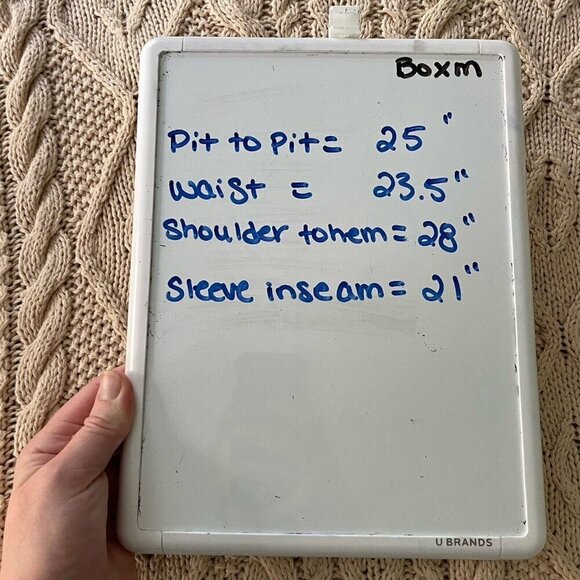 BoxM
Pit to Pit = 25"
waist = 23.5"
Shoulder to hem = 28"
Sleeve inseam = 21"
U BRANDS